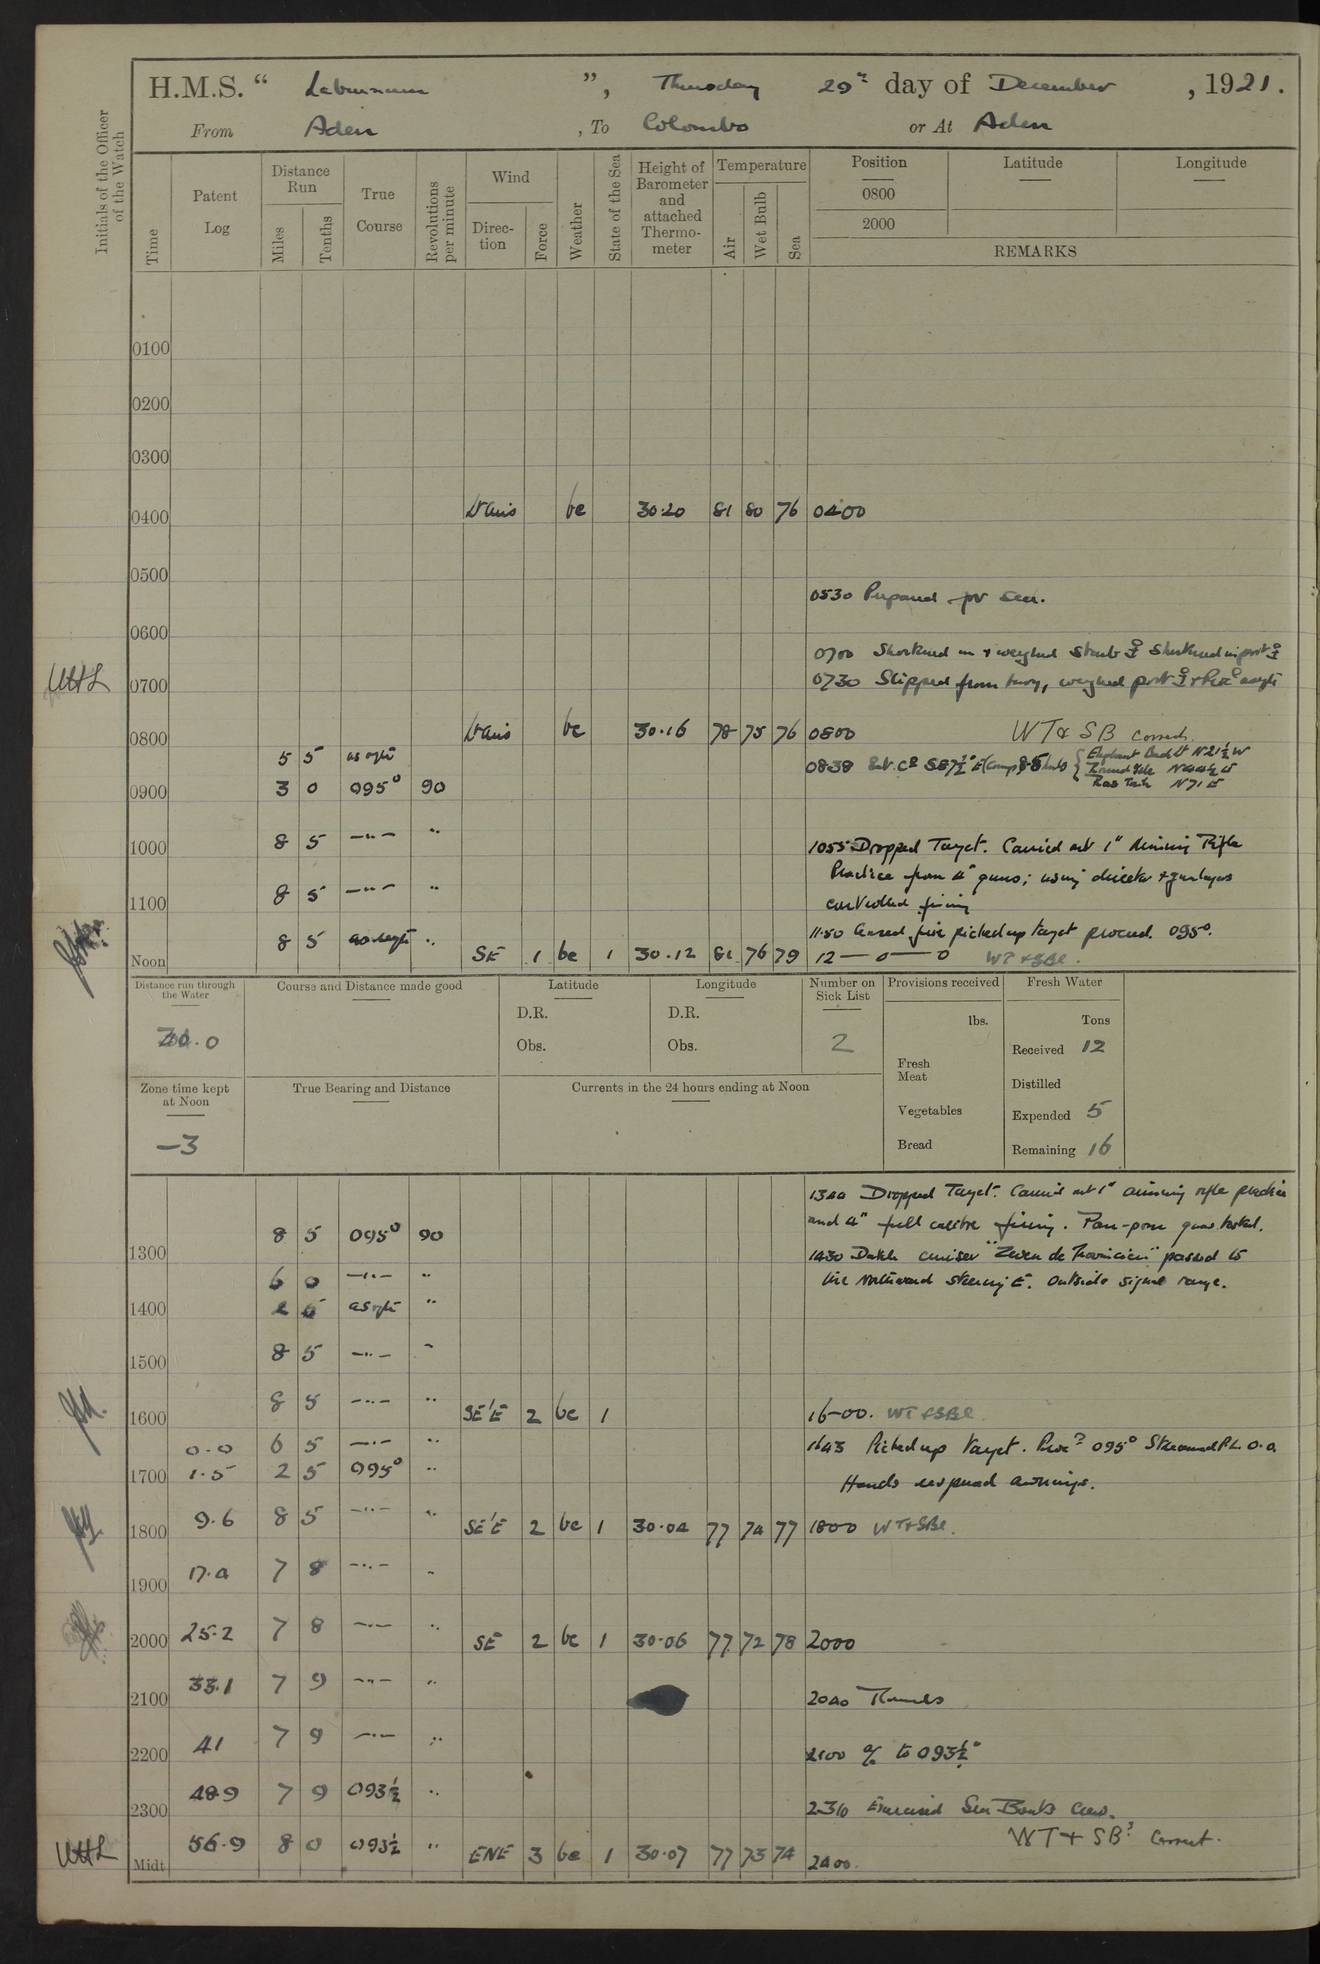 H.M.S. “ Laburnum ”, Thursday 29th day of December, 1921.
From Aden, To Colombo or At Aden
Initials of the Officer of the Watch
Time
Patent Log
Distance Run
Miles
Tenths
True Course
Revolutions per minute
Wind
Direc-tion
Force
Weather
State of the Sea
Height of Barometer and attached Thermo-meter
Temperature
Air
Wet Bulb
Sea
Position Latitude Longitude
0800
2000
REMARKS
0100
0200
0300
0400 bc 30.20 81 80 76 0400
0500
0530 Prepared for sea.
0600
0700 Shortened in & weighed starb ⚓ shortened in port ⚓
0700
0730 Slipped from buoy, weighed port
0800 bc 30.16 78 75 76 0800 WT & SB correct.
5 5 as reqte
0838
Ras N 71 E
0900 3 0 095° 90
1000 8 5 —"— "
1055 Dropped Target. Carried out 1" Aiming Rifle
Practice from 4" guns; using director & gunlayers
controlled firing
1100 8 5 —"— "
1150 Ceased fire picked up target proceed. 095°.
Noon 8 5 as reqte " SE 1 bc 1 30.12 81 76 79 12 — 0 — 0 WT & SBs.
Distance run through the Water
.0
Course and Distance made good
Latitude
D.R.
Obs.
Longitude
D.R.
Obs.
Number on Sick List
2
Provisions received
lbs.
Fresh Meat
Vegetables
Bread
Fresh Water
Tons
Received 12
Distilled
Expended 5
Remaining 16
Zone time kept at Noon
—3
True Bearing and Distance
Currents in the 24 hours ending at Noon
1340 Dropped Target. Carried out 1" aiming rifle practice
and 4" full calibre firing. Pom-pom guns tested.
1300 8 5 095° 90
1430 Dutch cruiser "Zeven de Provincien" passed to
the Northward steering E. outside signal range.
6 0 —"— "
1400 as reqte "
1500 8 5 —"— "
1600 8 5 —"— " SE'E 2 bc 1 16-00. WT & SBs
0.0 6 5 —"— " 1643 Picked up target. Proc? 095° Streamed P.L. 0.0
1700 1.5 2 5 095° "
Hands awnings.
1800 9.6 8 5 —"— " SE'E 2 bc 1 30.04 77 74 77 1800 WT & SBs.
1900 17.4 7 8 —"— "
2000 25.2 7 8 —"— " SE 2 bc 1 30.06 77 72 78 2000
2100 33.1 7 9 —"— "
2040
2200 41 7 9 —"— "
2100 a/c to 093½°
2300 48.9 7 9 093½ "
2310 Exercised Sea Boats Crew.
WT & SBs Correct.
Midt 56.9 8 0 093½ " ENE 3 bc 1 30.07 77 73 74 2400.